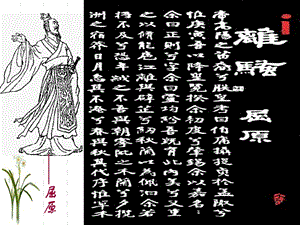 離騷
屈原
帝高陽之苗裔兮朕皇考曰伯庸攝提貞於孟陬兮
惟庚寅吾以降皇覽揆余初度兮肇錫余以嘉名
余曰正則兮字余曰靈均紛吾既有此內美兮又重
之以脩能扈江離與辟芷兮紉秋蘭以為佩汩余若
將不及兮恐年歲之不吾與朝搴阰之木蘭兮夕攬
洲之宿莽日月忽其不淹兮春與秋其代序惟草木
屈原